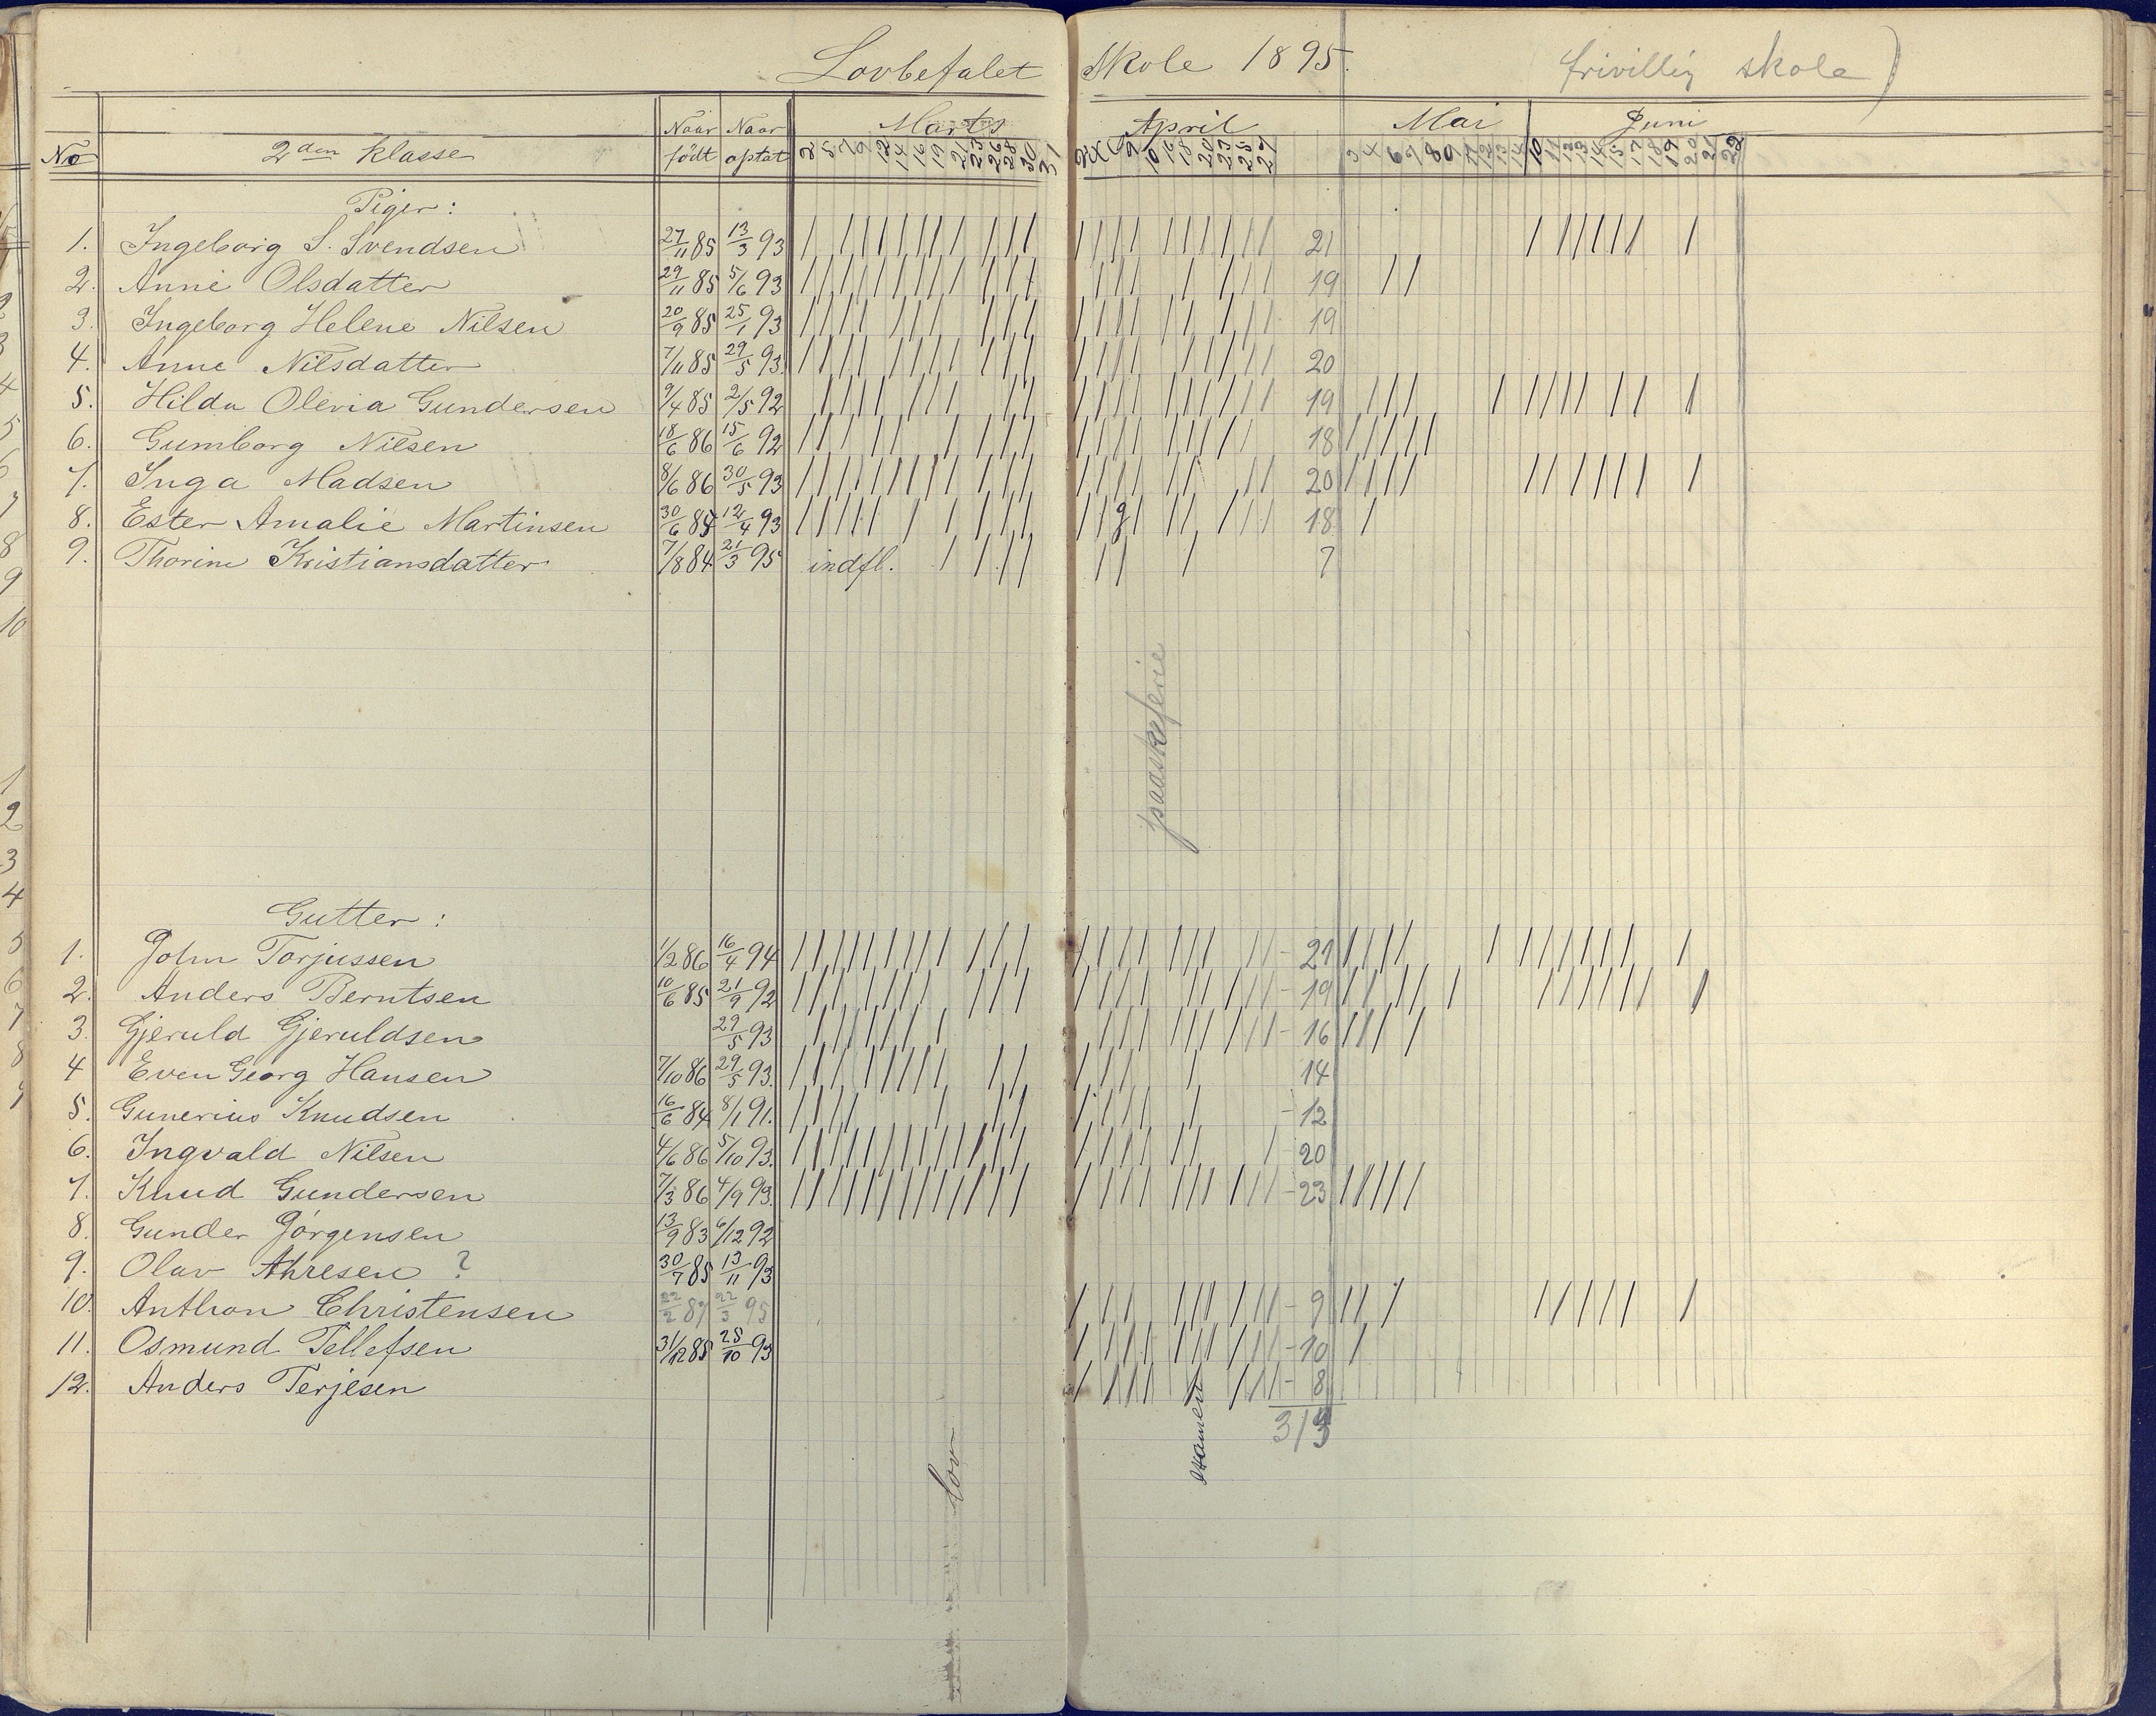 Lovbefalet Skole 1895. frivillig skole)
No 2den Klasse Naar født Naar optat Marts April Mai Juni
Piger:
1. Ingeborg S. Svendsen 27/11 85 13/3 93 21
2. Anne Olsdatter 29/11 85 5/6 93 19
3. Ingeborg Helene Nilsen 20/9 85 25/1 93 19
4. Anne Nilsdatter 7/11 85 29/5 93. 20
5. Hilda Olevia Gundersen 9/4 85 2/5 92 19
6. Gumborg Nilsen 18/6 86 15/6 92 18
7. Inga Madsen 8/6 86 30/5 93 20
8. Ester Amalie Martinsen 30/6 84 12/4 93 18
9. Thorine Kristiansdatter 7/8 84 21/3 95 indfl. 7
paaskeferie
Gutter:
1. John Torjussen 1/2 86 16/4 94 21
2. Anders Berntsen 10/6 85 21/9 92 19
3. Gjeruld Gjeruldsen 29/5 93 16
4 Even Georg Hansen 7/10 86 29/5 93. 14
5. Gunerius Knudsen 16/6 84 8/1 91. 12
6. Ingvald Nilsen 4/6 86 5/10 93. 20
7. Knud Gundersen 7/3 86 4/9 93. 23
8. Gunder Jörgensen 13/9 83 6/12 92
9. Olav Ahresen ? 30/7 85 13/11 93
10. Anthon Christensen 22/2 87 22/3 95 9
11. Osmund Tellefsen 31/12 85 28/10 93 10
12. Anders Terjesen 8
lov